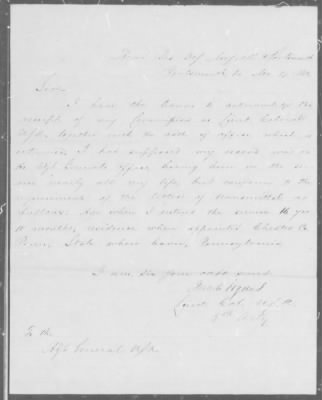 Head Qrs Def Norfolk & Portsmouth
Portsmouth Va Nov
Sir
I have the honor to acknowledge the
receipt of my Commission as Lieut Colonel
USA, together with the oath of office which is
returned. I had supposed my record was in
the Adj Generals office having been in the ser
vice nearly all my life, but conform to the
requirement of the letter of transmittal as
follows. Age when I entered the service 16 yrs
10 months, residence when appointed Chester Co
Penn, State where born, Pennsylvania
I am Sir your obdt servt
Lieut Col
5th Arty
To the
Adjt General USA